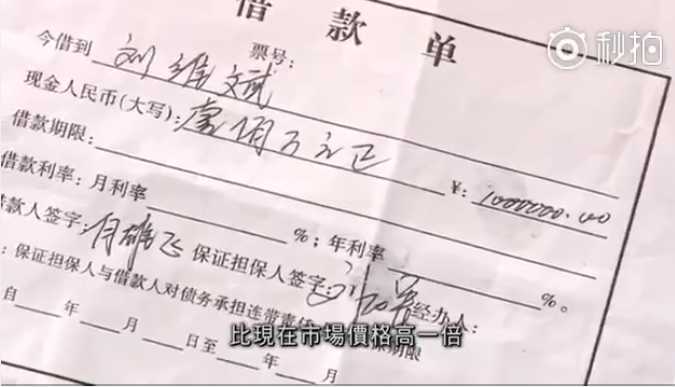 借款单
秒拍
票号：
今借到 刘维斌
现金人民币(大写)：壹佰万元正 ¥：1000000.00
借款期限：
借款利率：月利率 %；年利率 %。
款人签字： 飞 保证担保人签字： 经办人：
：保证担保人与借款人对债务承担连带责 期限
自 年 月 日至 年 月
比現在市場價格高一倍